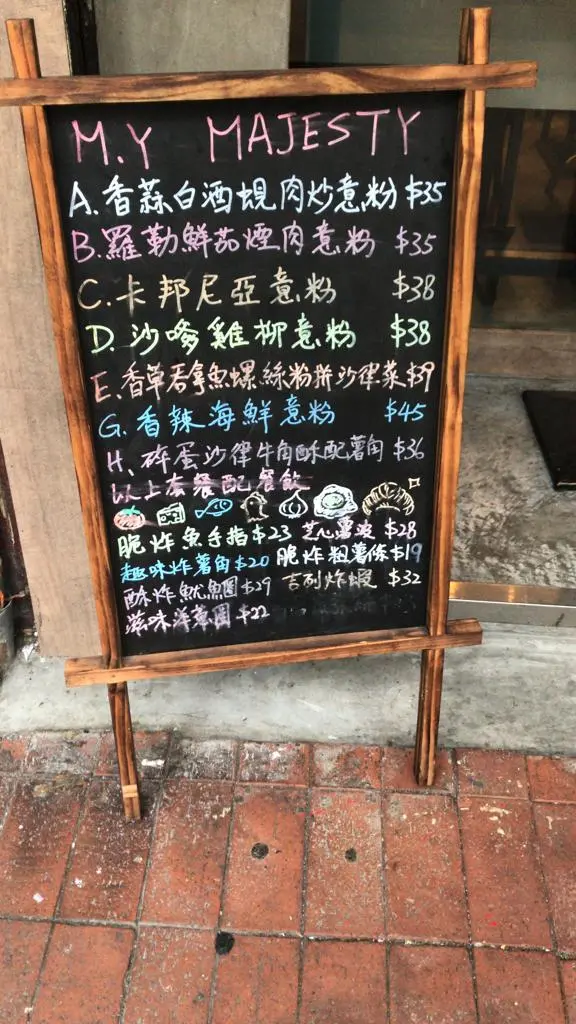 M.Y MAJESTY
A. 香蒜白酒蜆肉炒意粉 $35
B. 羅勒鮮茄煙肉意粉 $35
C. 卡邦尼亞意粉 $38
D. 沙嗲雞柳意粉 $38
E. 香草吞拿魚螺絲粉拼沙律菜 $39
G. 香辣海鮮意粉 $45
H. 碎蛋沙律牛角酥配薯角 $36
以上套餐配餐飲
脆炸魚手指 $23 芝心薯波 $28
趣味炸薯角 $20 脆炸粗薯條 $19
酥炸魷魚圈 $29 吉列炸蝦 $32
滋味洋葱圈 $22